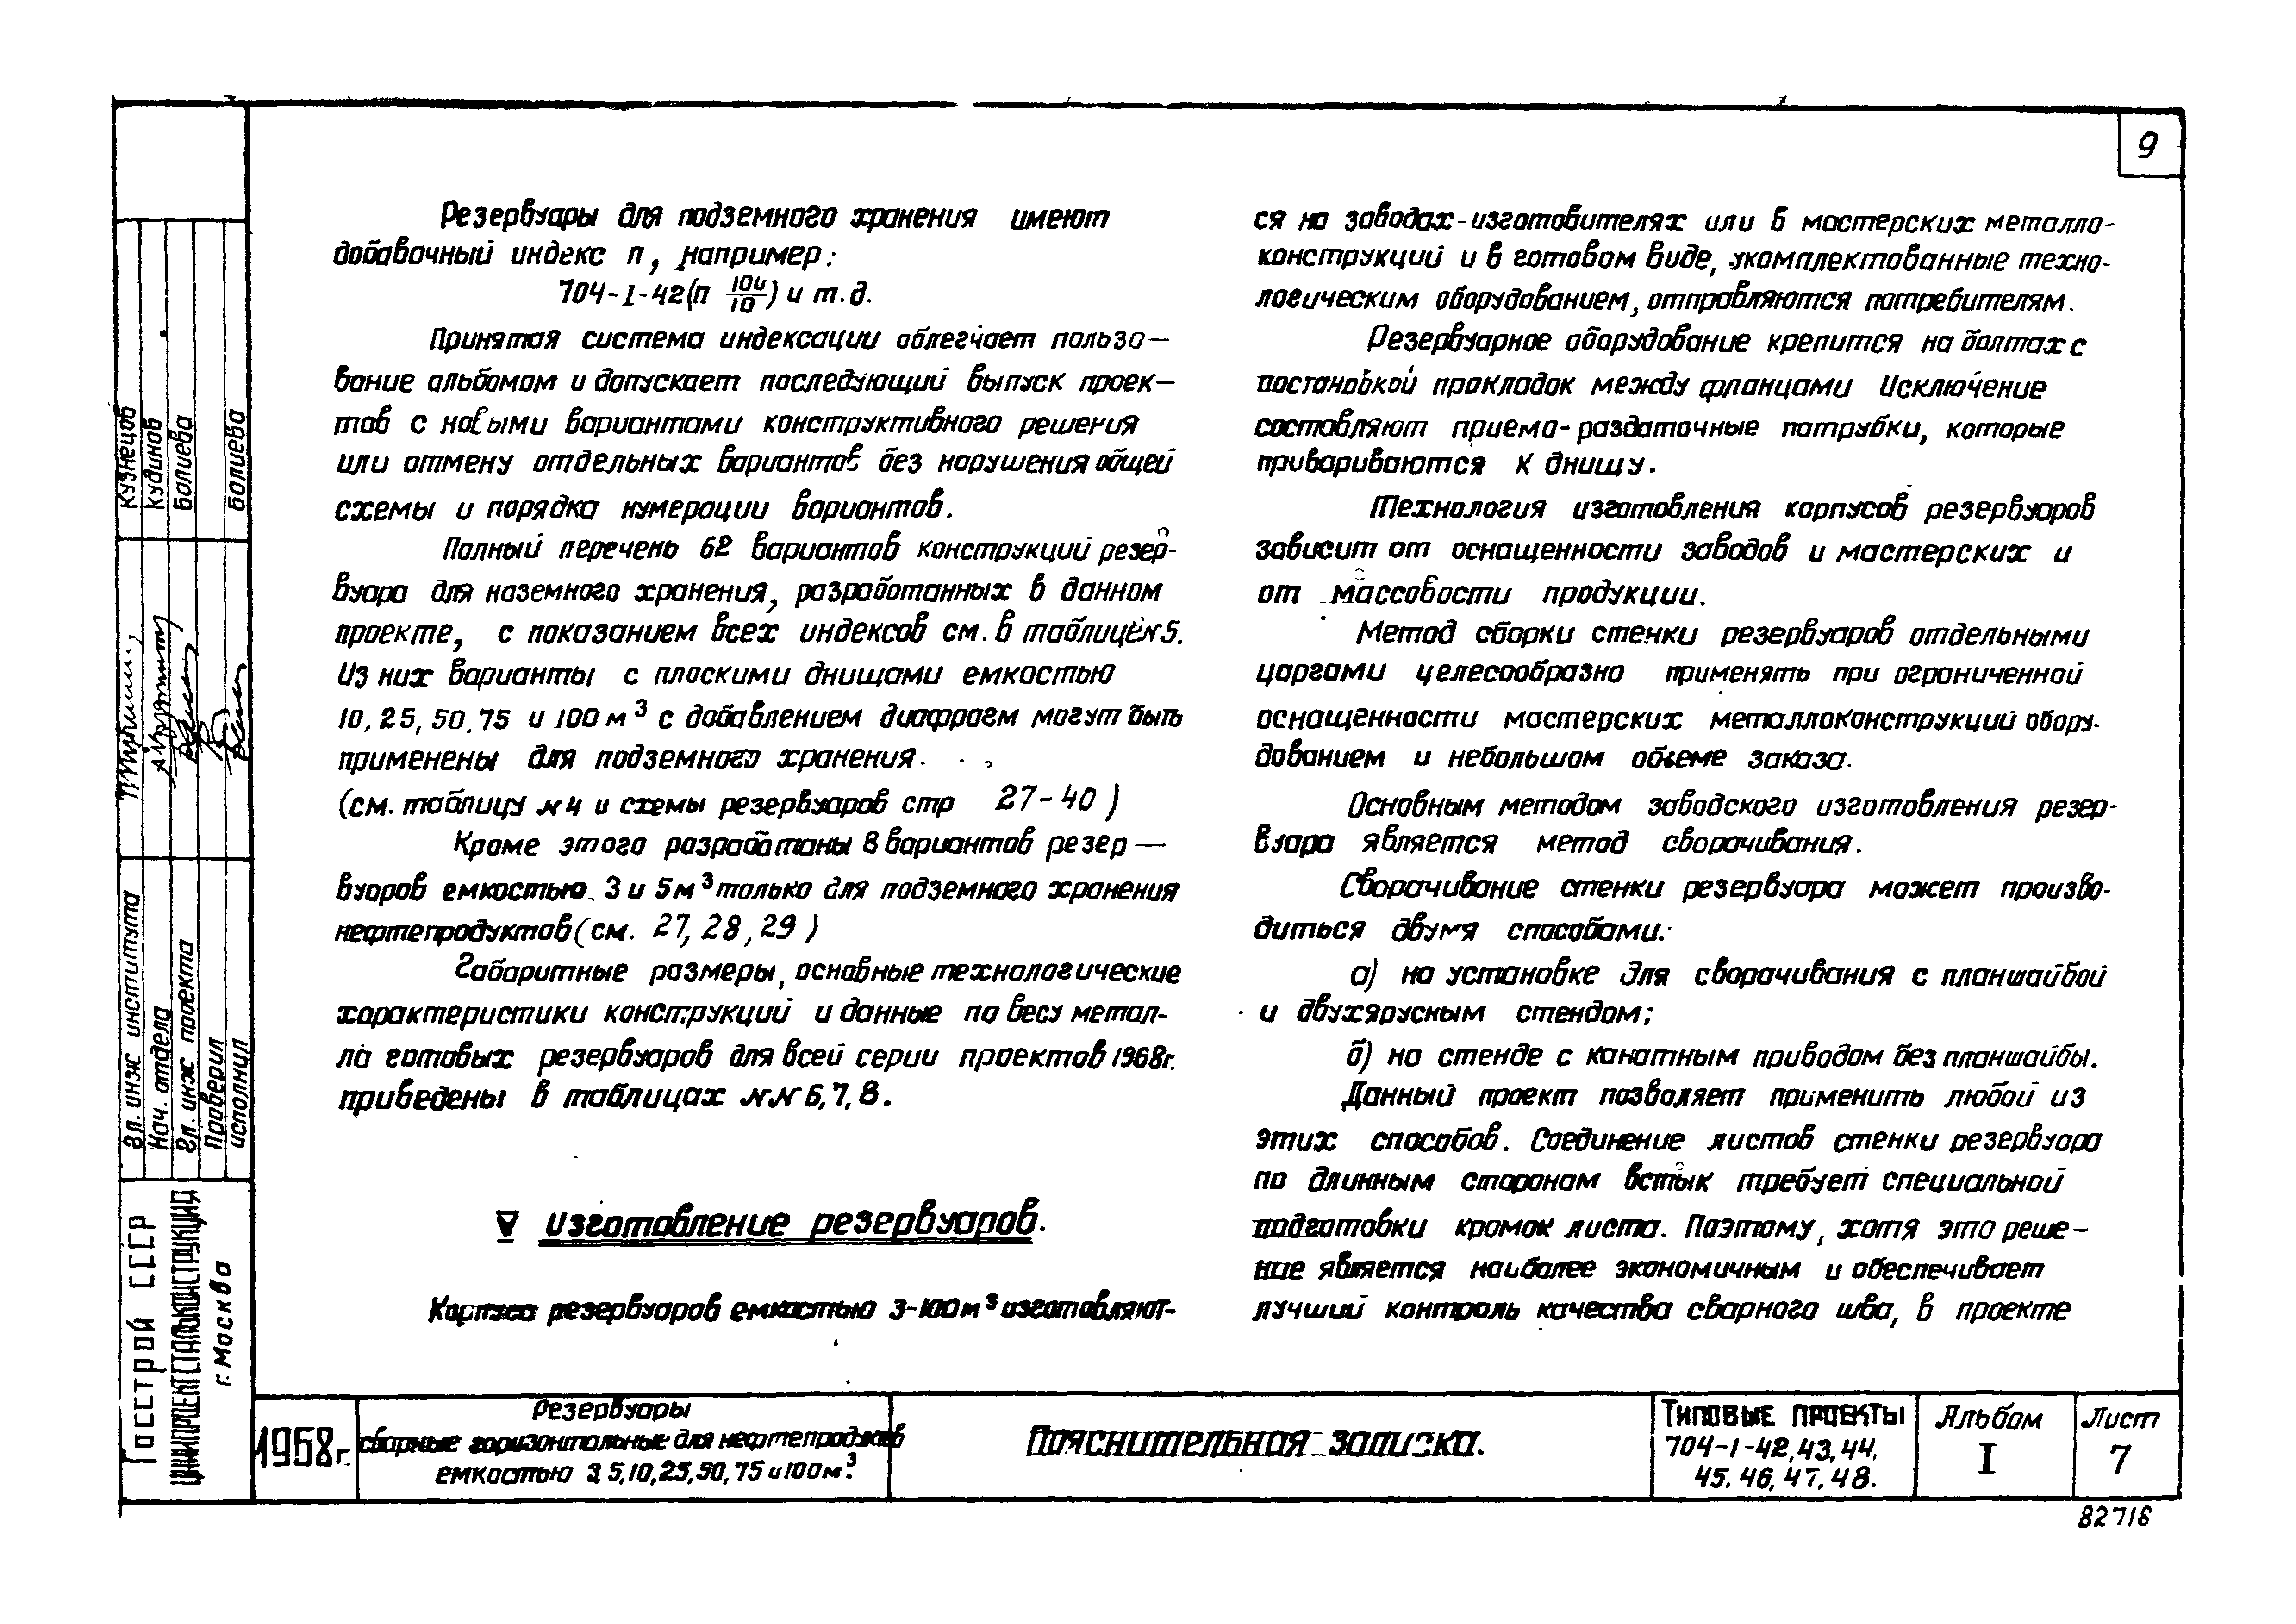 9
Резервуары для подземного хранения имеют
добавочный индекс п, например:
704-I-42(п 104/10) и т.д.
Принятая система индексации облегчает пользо-
вание альбомом и допускает последующий выпуск проек-
тов с новыми вариантами конструктивного решения
или отмену отдельных вариантов без нарушения общей
схемы и порядка нумерации вариантов.
Полный перечень 62 вариантов конструкций резер-
вуара для наземного хранения, разработанных в данном
проекте, с показанием всех индексов см. в таблице №5.
Из них варианты с плоскими днищами емкостью
10, 25, 50, 75 и 100 м³ с добавлением диафрагм могут быть
применены для подземного хранения.
(см. таблицу №4 и схемы резервуаров стр 27-40)
Кроме этого разработаны 8 вариантов резер-
вуаров емкостью 3 и 5 м³ только для подземного хранения
нефтепродуктов (см. 27, 28, 29)
Габаритные размеры, основные технологические
характеристики конструкций и данные по весу метал-
ла готовых резервуаров для всей серии проектов 1968г.
приведены в таблицах №№ 6, 7, 8.
V Изготовление резервуаров.
Корпуса резервуаров емкостью 3-100 м³ изготовляют-
ся на заводах-изготовителях или в мастерских металло-
конструкций и в готовом виде, укомплектованные техно-
логическим оборудованием, отправляются потребителям.
Резервуарное оборудование крепится на болтах с
постановкой прокладок между фланцами Исключение
составляют приемо-раздаточные патрубки, которые
привариваются к днищу.
Технология изготовления корпусов резервуаров
зависит от оснащенности заводов и мастерских и
от массовости продукции.
Метод сборки стенки резервуаров отдельными
царгами целесообразно применять при ограниченной
оснащенности мастерских металлоконструкций обору-
дованием и небольшом объеме заказа.
Основным методом заводского изготовления резер-
вуара является метод сворачивания.
Сворачивание стенки резервуара может произво-
диться двумя способами:
а) на установке для сворачивания с планшайбой
и двухярусным стендом;
б) на стенде с канатным приводом без планшайбы.
Данный проект позволяет применить любой из
этих способов. Соединение листов стенки резервуара
по длинным сторонам встык требует специальной
подготовки кромок листа. Поэтому, хотя это реше-
ние является наиболее экономичным и обеспечивает
лучший контроль качества сварного шва, в проекте
Гл. инж института Кузнецов
Нач. отдела Кудинов
Гл. инж проекта Балиева
Проверил
исполнил Балиева
Госстрой СССР
ЦНИИПРОЕКТСТАЛЬКОНСТРУКЦИЯ
г. Москва
1968г.
Резервуары
сборные горизонтальные для нефтепродуктов
емкостью 3, 5, 10, 25, 50, 75 и 100 м³.
Пояснительная записка.
Типовые проекты
704-I-42, 43, 44,
45, 46, 47, 48.
Альбом
I
Лист
7
82718